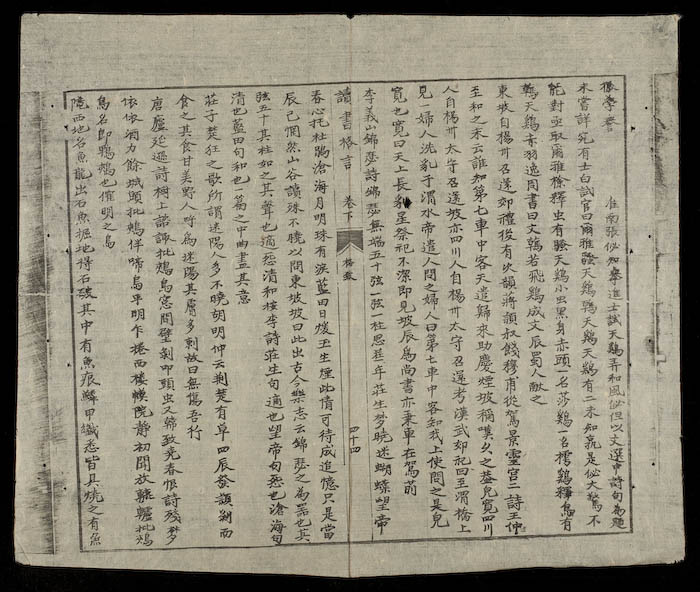 淮南張佖知舉進士試天鷄弄和風佖但以文選中詩句為題
未嘗詳究有士白試官曰爾雅螒天鷄鶾天鷄天鷄有二未知孰是佖大驚不
能對亟取爾雅檢釋虫有螒天鷄小虫黑身赤頭一名莎鷄一名樗鷄釋鳥有
鶾天鷄赤羽逸周書曰文鶾若彩鷄成文辰蜀人獻之
東坡自揚州召還郊禮後有次韻蔣頴叔錢穆甫從駕景靈宮二詩王仲
至和之末云誰知第七車中客天遣歸來助慶煙坡稱嘆久之蓋兒寬四川
人自揚州太守召還坡亦四川人自揚州太守召還考漢武郊祀回至渭橋上
見一婦人洗乳于渭水帝遣人問之婦人曰第七車中客知我上使問之是兒
寬也寬曰天上長乳星祭祀不潔即見坡辰為尚書亦乘車在駕前
李義山錦瑟詩錦瑟無端五十弦一弦一柱思華年莊生夢曉迷蝴蝶望帝
讀書格言 卷下 四十四
春心托杜鵑滄海月明珠有淚藍田日煖玉生煙此情可待成追憶只是當
辰已惘然山谷讀殊不曉以問東坡坡曰此出古今樂志云錦瑟之為器也其
弦五十其柱如之其聲也適怨清和按李詩莊生句適也望帝句怨也滄海句
清也藍田句和也一篇之中曲盡其意
莊子楚狂之歌所謂迷陽人多不曉胡明仲云荆楚有草四辰發頴剥而
食之其食甘美野人呼為迷陽其膚多刺故曰無傷吾行
唐盧延遜詩樹上諮諏批鵊鳥窓間壁剝叩頭虫又韓致光春恨詩殘夢
依依酒力餘城頭批鵊伴啼烏平明乍捲西樓幙院靜初聞放轆轤批鵊
鳥名即鴨鵊也催明之鳥
隴西地名魚龍出石魚掘地得石破其中有魚痕鱗甲識悉皆具燒之有魚